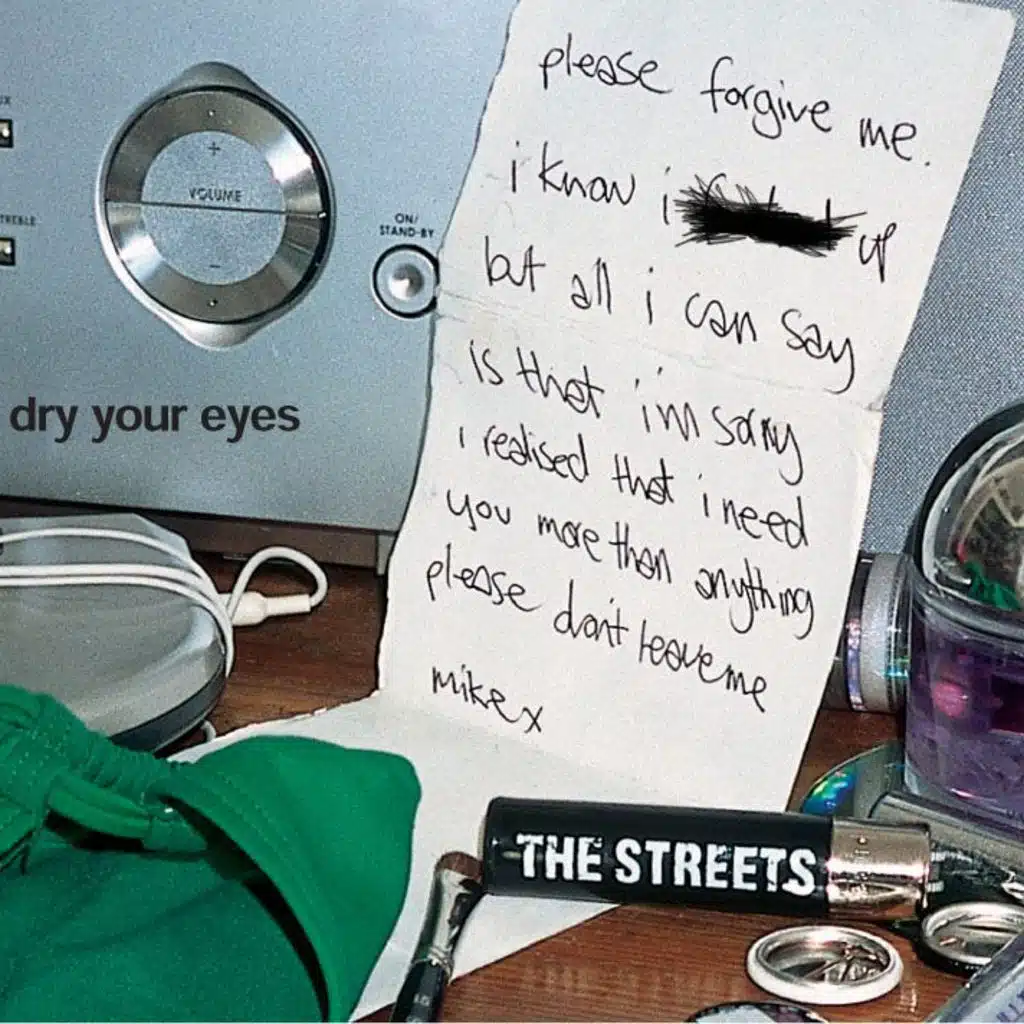 VOLUME
TREBLE
ON/
STAND-BY
dry your eyes
please forgive me.
i know i up
but all i can say
is that i'm sorry
i realised that i need
you more than anything
please don't leave me
mike x
THE STREETS